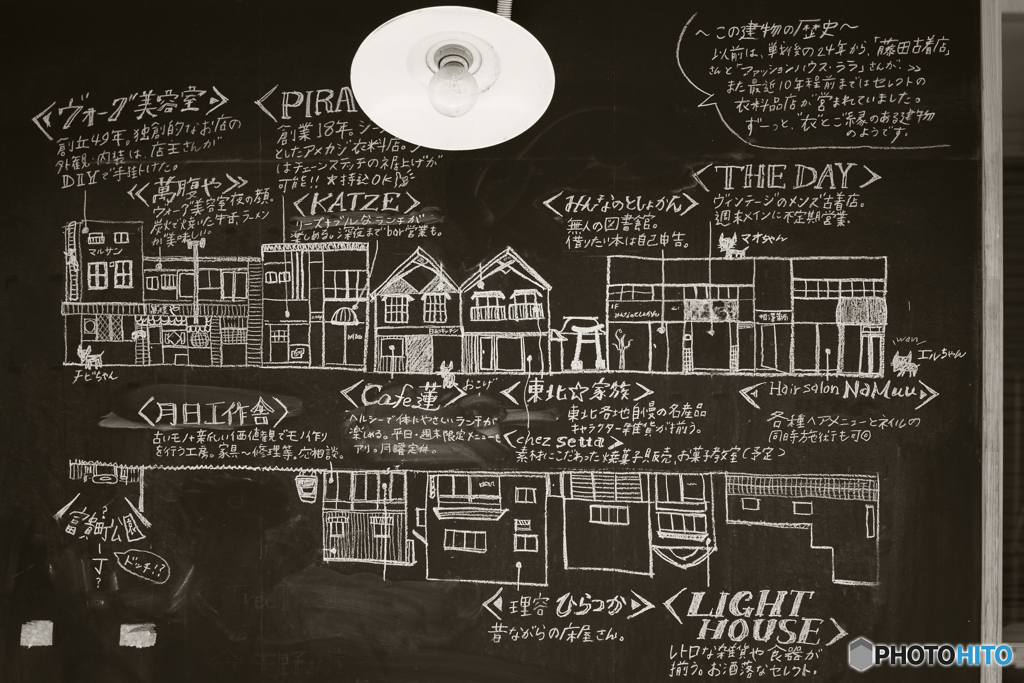 ～この建物の歴史～
以前は、戦後の24年から、「藤田古着店」
さんと「ファッションハウス・ララ」さんが、
また最近10年程前まではセレクトの
衣料品店が営まれていました。
ずーっと、"衣"とご縁のある建物
のようです。
ヴォーグ美容室
創立49年。独創的なお店の
外観・内装は、店主さんが
DIYで手掛けた。
PIRA
創業18年。シー
としたアメカジ衣料店。
はチェーンステッチの裾上げが
可能!! ★持込OK
萬腹や
ヴォーグ美容室夜の顔。
炭で焼いた牛舌、ラーメン
が美味しい
KATZE
リーズナブルなランチが
楽しめる。深夜までbar営業も。
みんなのとしょかん
無人の図書館。
借りたい本は自己申告。
THE DAY
ヴィンテージのメンズ古着店。
週末メインに不定期営業。
マオちゃん
マルサン
チビちゃん
おこげ
wan
エルちゃん
月日工作舎
古いモノ+新しい価値観でモノ作り
を行う工房。家具～修理等、応相談。
Cafe 蓮
ヘルシーで体にやさしいランチが
楽しめる。平日・週末限定メニューも
アリ。月曜定休。
東北☆家族
東北各地自慢の名産品
キャラクター雑貨が揃う。
chez setta
素材にこだわった焼菓子販売、お菓子教室(予定)
Hair salon NaMuu
各種ヘアメニューとネイルの
同時施術も可◎
?
富舞町公園
?
ドッチ!?
理容 ひらつか
昔ながらの床屋さん。
LIGHT
HOUSE
レトロな雑貨や食器が
揃う。お洒落なセレクト。
PHOTOHITO